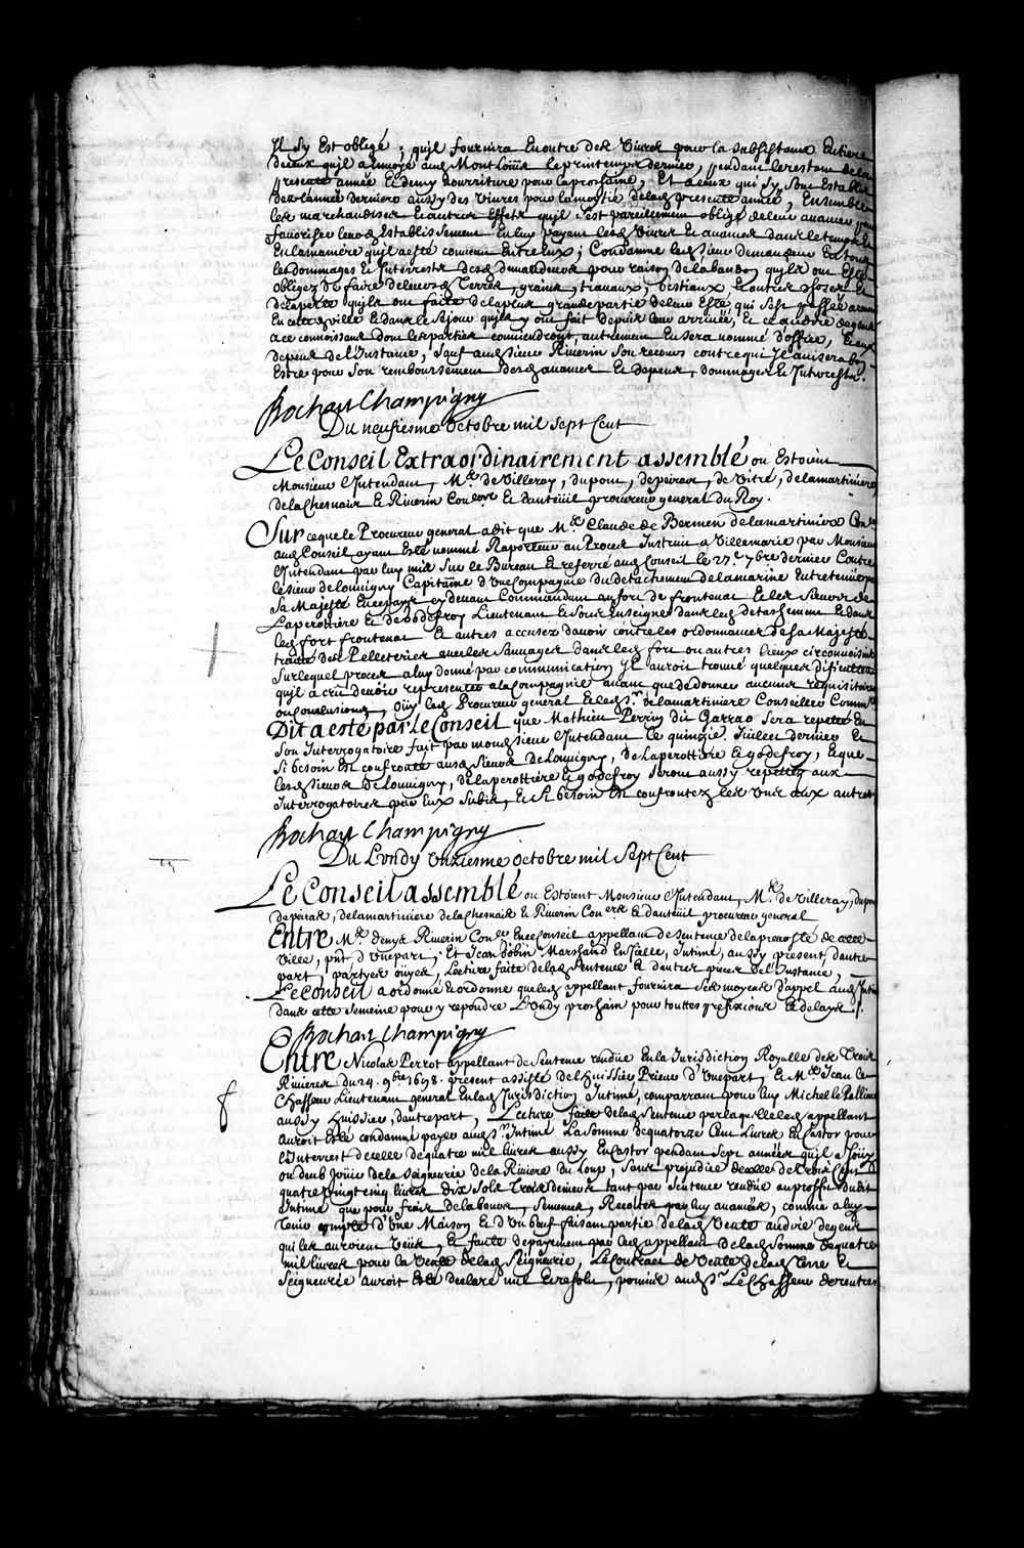 Il sy Est obligé ; quil fournira En outre des Vivres pour la subsistance Entiere
deceux quil a Envoyé aud Mont Loüis le printemps dernier, pendant le restant de la
presente année Et demy nourriture pour la prochaine, Et a ceux qui sy sont Establis
des l'année derniere aussy des Vivres pour la moitié delad presente année, Ensemble
les marchandises Et autres Effets quil s'est pareillement obligé de leur avancer pour
favoriser leurd Establissement En luy payant lesd Vivres Et avances dans le temps Et
En la maniere quil a esté convenu Entre Eux ; Condamne led sieur demandeur En tous
les dommages Et Interrests desd demandeurs pour raison de labandon quils ont Esté
obligez de faire de leurs Terres, grains, travaux, bestiaux, Et autres choses Et
de la perte quils ont faite de la plus grande partie de leur Esté qui sest passée avant
En cette ville Et dans le sejour quils y ont fait depuis leur arrivée, Et ce au dire de gens
a ce connoissans dont les parties conviendront, autrement En sera nommé d'office, Et aux
depens de l'Instance, sauf aud sieur Riverin son recours contre qui Il avisera bon
Estre pour son remboursement desd avances Et depens, dommages Et Interests.
Bochart Champigny
Du neufiesme Octobre mil sept Cent
Le Conseil Extraordinairement assemblé ou Estoient
Monsieur l'Intendant, Mes de Villeray, dupont, depeiras, de Vitré, delamartiniere
delaChesnaie Et Riverin Coners Et dauteüil procureur general du Roy.
Sur ce que le Procureur general a dit que Me Claude de Bermen delamartiniere Coner
aud Conseil ayant Esté nommé Raporteur au Procez Instruit a Villemarie par Monsieur
l'Intendant par luy mis sur le Bureau Et referé aud Conseil le 27e 7bre dernier Contre
le sieur de Louvigny Capitaine d'Une Compagnie du detachement de la marine Entretenüe par
Sa Majesté En ce pays cy devant Commandant au fort de frontenac Et les sieurs de
Laperottiere Et de Godefroy Lieutenant Et sous Enseigne dans led detachement Et dans
led fort frontenac Et autres accusez davoir contre les ordonnances de Sa Majesté
traitté des Pelleteries avec les Sauvages dans led fort ou autres lieux circonvoisins
Sur lequel procez a luy donné par communication Il auroit trouvé quelques dificultez
quil a crû devoir representer a la Compagnie avant que de donner aucunes requisitions
ou Conclusions, Oüy led Procureur general Et led Sr delamartiniere Conseiller Commre
Dit a esté par Le Conseil que Mathieu Perrin dit Garrao sera repeté En
son Interrogatoire fait par mond sieur l'Intendant le quinze Juillet dernier Et
si besoin Est confronté ausd sieurs de Louvigny, de Laperottiere Et godefroy, Et que
lesd sieurs de Louvigny, de laperottiere Et godefroy seront aussy repettez aux
Interrogatoires par Eux subis, Et si besoin Est confrontez les Uns aux autres
Bochart Champigny
Du Lundy Unziesme octobre mil Sept Cent
Le Conseil assemblé ou Estoient Monsieur l'Intendant, Mes de Villeray, dupont
depeiras, delamartiniere delaChesnaie Et Riverin Coners Et dauteüil procureur general
Entre Me denys Riverin Coner En ce Conseil appellant de sentence de la prevosté de cette
Ville, pnt, d'Une part ; Et Jean Gobin Marchand En icelle, Intimé, aussy present, dautre
part, partyes oüyes, Lecture faite delad sentence Et dautres pieces de l'Instance,
Le Conseil a ordonné Et ordonne que led appellant fournira ses moyens d'appel aud Intimé
dans cette semaine pour y repondre Lundy prochain pour touttes prefixions Et delays /.
Bochart Champigny
Entre Nicolas Perrot appellant de sentence rendüe En la Jurisdiction Royalle des Trois
Rivieres du 24. 9bre 1698. present assisté de l'huissier Prieur d'Une part, Et Me Jean le
Chasseur Lieutenant general En lad Jurisdiction Intimé, comparant pour luy Michel le Pallieur
aussy huissier, dautre part, Lecture faite delad sentence par laquelle led appellant
auroit Esté condamné payer aud Sr Intimé La somme de quatorze Cent Livres En Castor pour
l'Interrest de celle de quatre mil livres aussy En Castor pendant sept années quil a Joüy
ou deub Joüir de la seigneurie de la Riviere du Loup, sans prejudice de celle de Trois Cent
quatre vingt cinq livres dix sols Trois deniers tant par sentence rendüe au proffit dudit
Intimé que pour frais de labours, semences, Recoltes par luy avancés, comme a luy
tenir compte d'Une Maison Et d'Un boeuf faisant partie delad Vente au dire de gens
qui les auroient Veüs, Et faute de payement par led appellant delad somme de quatre
mil livres pour la Vente delad Seigneurie, Le Contract de Vente delad Terre Et
Seigneurie auroit Esté declaré nul Et resolu, permis aud Sr Le Chasseur de rentrer